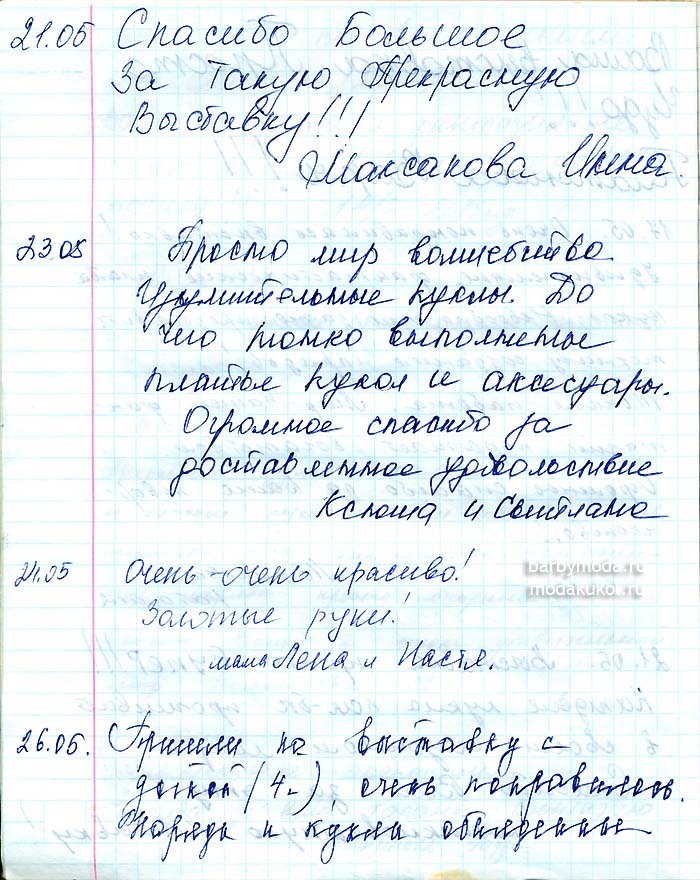 21.05 Спасибо Большое
За Такую Прекрасную
Выставку!!!
Максакова Инна.
23.05 Просто мир волшебства
Удумительные куклы. До
чего тонко выполненые
платье кукол и аксесуары.
Огромное спасибо за
доставленное удовольствие
Ксюша и Светлана
24.05 Очень-очень красиво!
Золотые руки!
мама Лена и Настя.
barbymoda.ru
modakukol.ru
26.05. Пришли на выставку с
(4.), очень понравилось.
Наряды и куклы